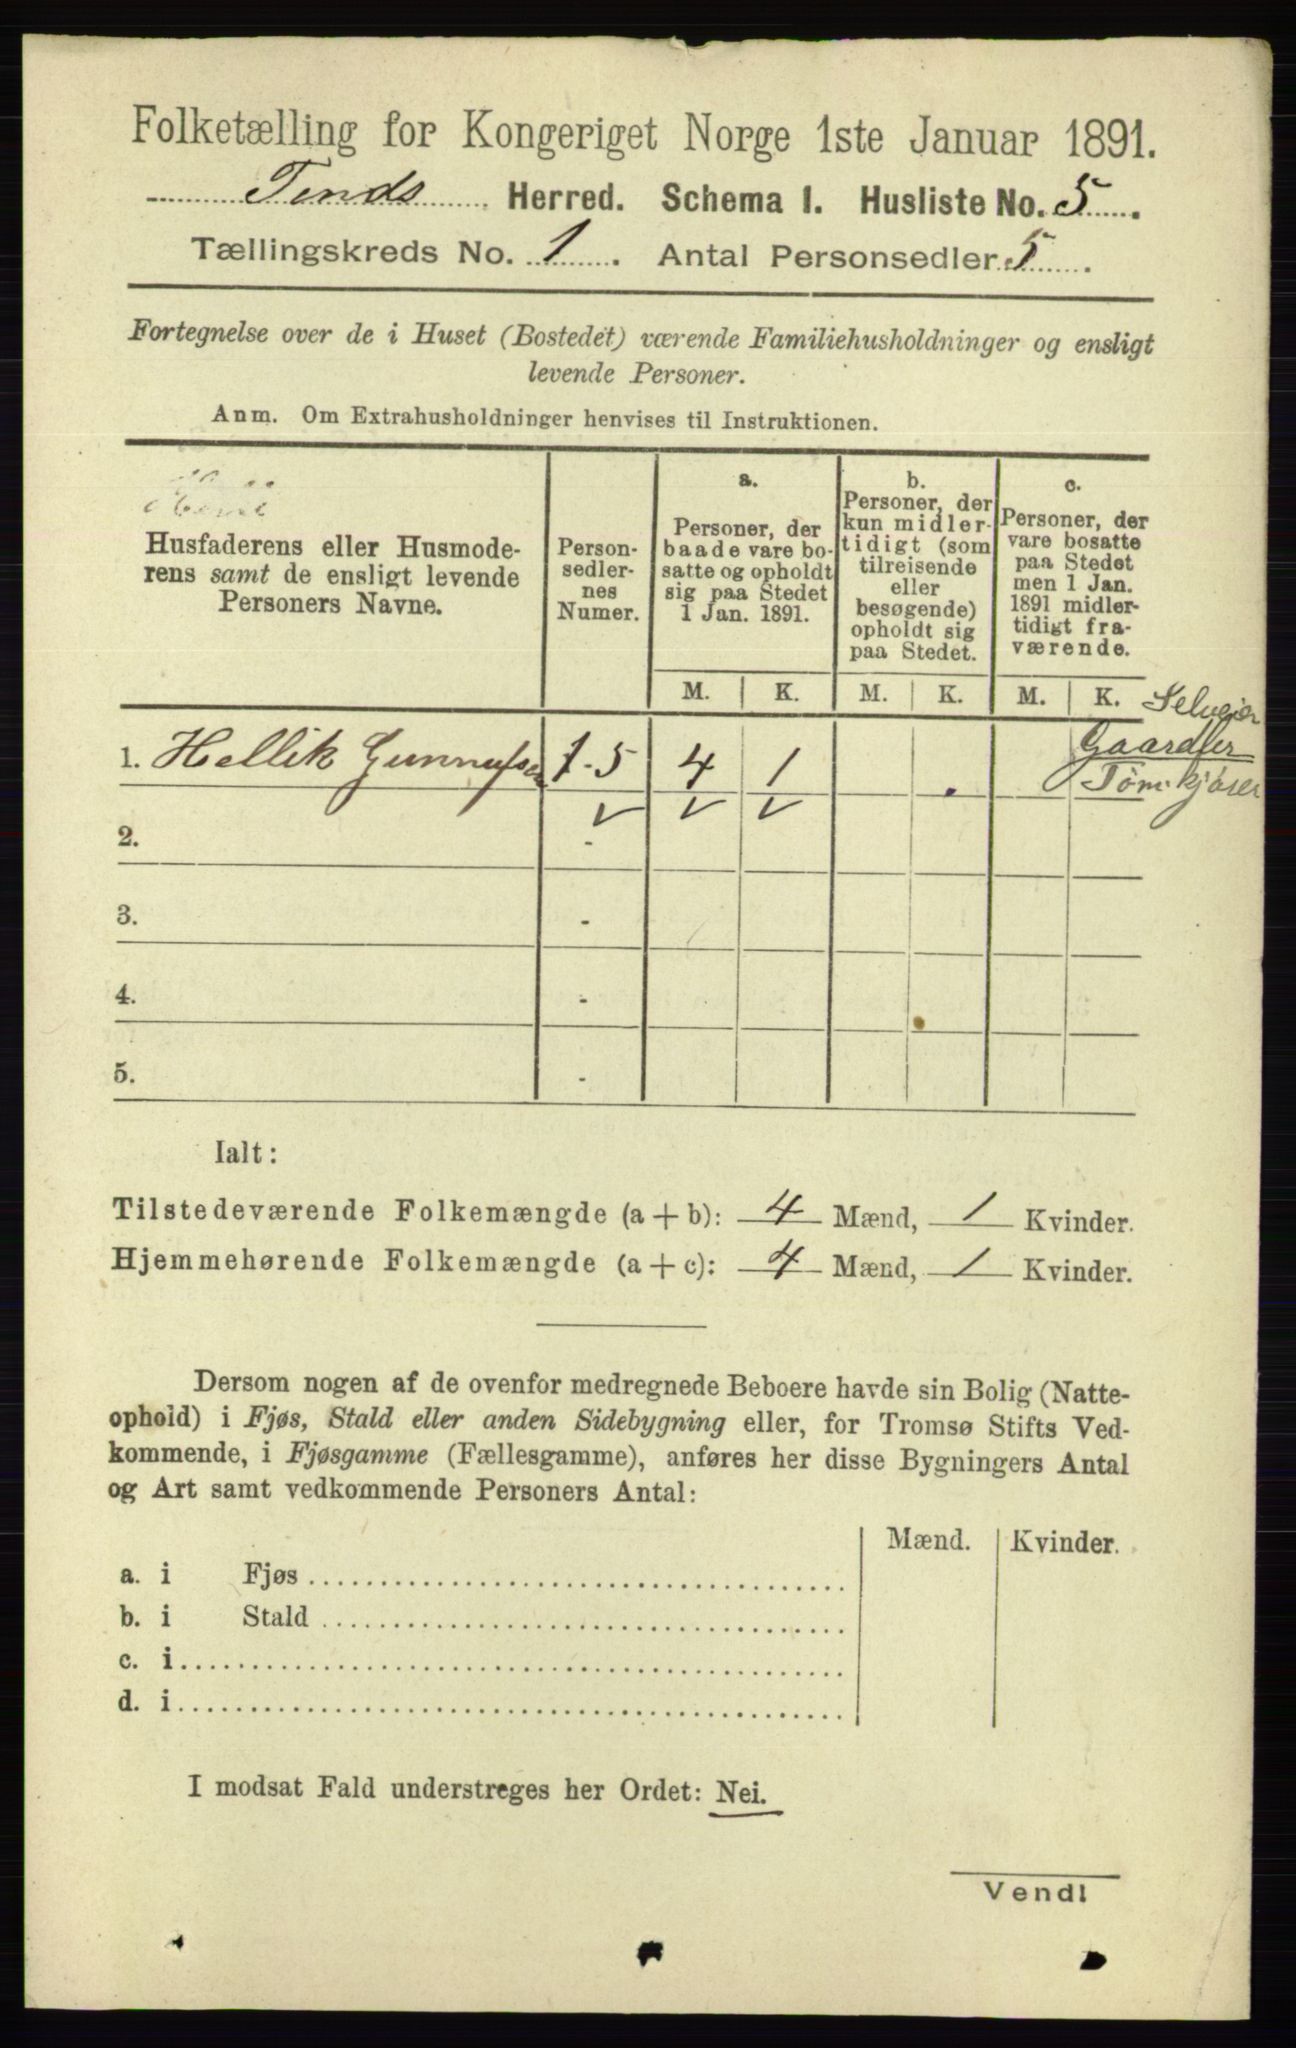 Folketælling for Kongeriget Norge 1ste Januar 1891.
Tinds Herred. Schema 1. Husliste No. 5.
Tællingskreds No. 1. Antal Personsedler 5.
Fortegnelse over de i Huset (Bostedet) værende Familiehusholdninger og ensligt
levende Personer.
Anm. Om Extrahusholdninger henvises til Instruktionen.
Husfaderens eller Husmode-
rens samt de ensligt levende
Personers Navne.
Person-
sedler-
nes
Numer.
a.
Personer, der
baade vare bo-
satte og opholdt
sig paa Stedet
1 Jan. 1891.
b.
Personer, der
kun midler-
tidigt (som
tilreisende
eller
besøgende)
opholdt sig
paa Stedet.
c.
Personer, der
vare bosatte
paa Stedet
men 1 Jan.
1891 midler-
tidigt fra-
værende.
M. K. M. K. M. K.
Selveier
Gaardbr
Tømkjører
1. Hellik Gunnufsen 1-5 4 1
2. -
3. -
4. -
5. -
Ialt:
Tilstedeværende Folkemængde (a + b): 4 Mænd, 1 Kvinder.
Hjemmehørende Folkemængde (a + c): 4 Mænd, 1 Kvinder.
Dersom nogen af de ovenfor medregnede Beboere havde sin Bolig (Natte-
ophold) i Fjøs, Stald eller anden Sidebygning eller, for Tromsø Stifts Ved-
kommende, i Fjøsgamme (Fællesgamme), anføres her disse Bygningers Antal
og Art samt vedkommende Personers Antal:
Mænd. Kvinder.
a. i Fjøs
b. i Stald
c. i
d. i
I modsat Fald understreges her Ordet: Nei.
Vend!